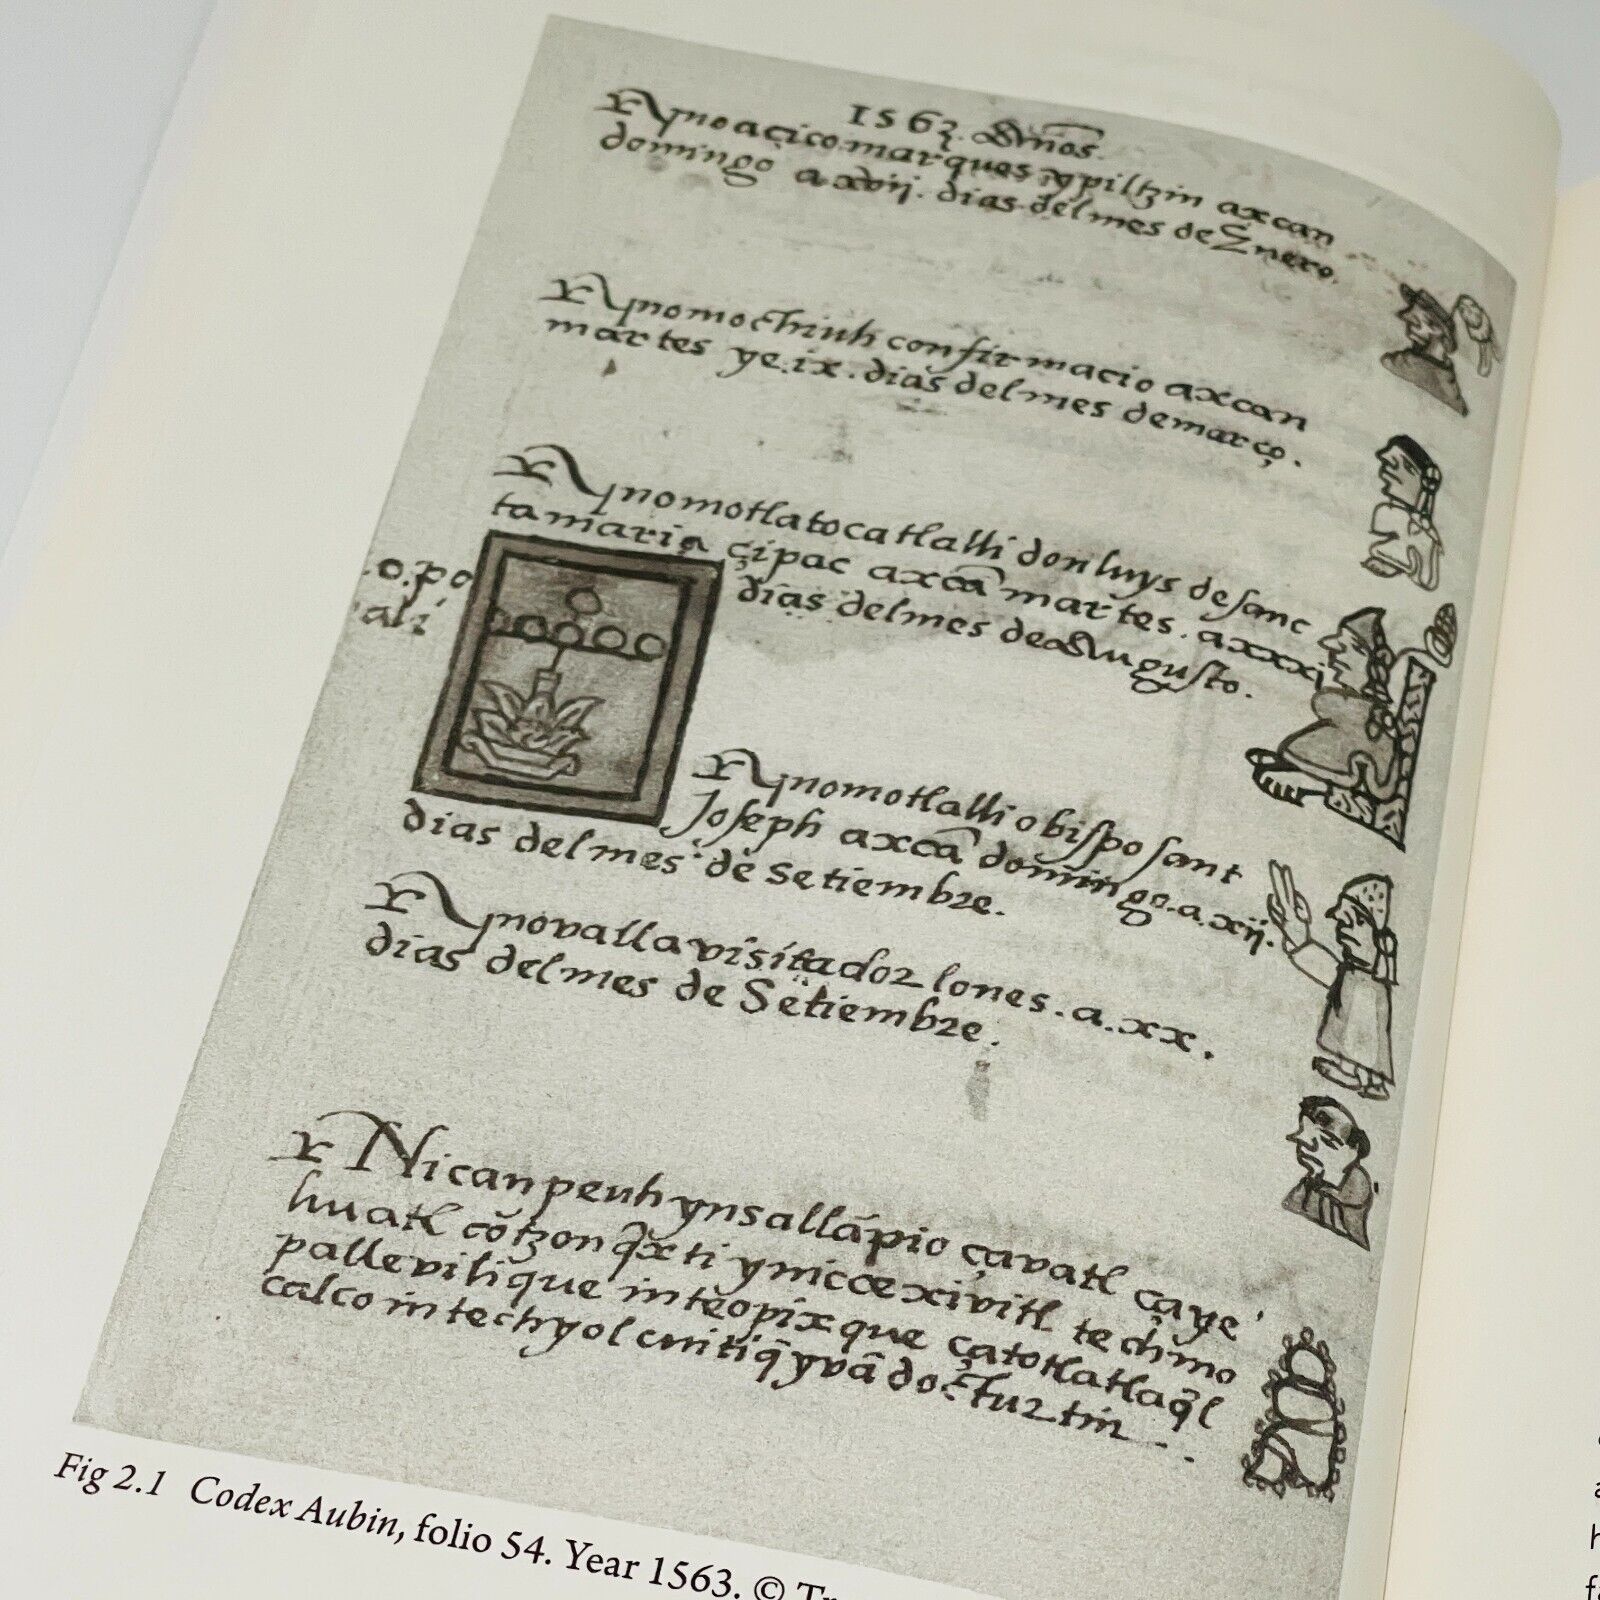 1563. Años.
r ynoaçico marques ypiltzin axcan
domingo axvij. dias delmes deEnero.
r ynomochiuh confirmacio axcan
martes ye.ix. dias delmes demarço.
r ynomotlatocatlalli donluys desanc
tamaria çipac axcā martes. axxxi
dias delmes deaAugusto.
.o.po
alí
r ynomotlalli obispo sant
Joseph axcā domingo. a.xij.
dias delmes de setiembre.
r ynovalla visitador lones. a. xx.
dias delmes de Setiembre.
r Nican peuh ynsallāpio çavatl çaye
huatl cōtzonq̄xti yniccexivitl techmo
pallevili que inteopixque çatotlatlaq̄l
calco intechyolcuitiq̄ yvā doctur tin
Fig 2.1 Codex Aubin, folio 54. Year 1563. © Tr